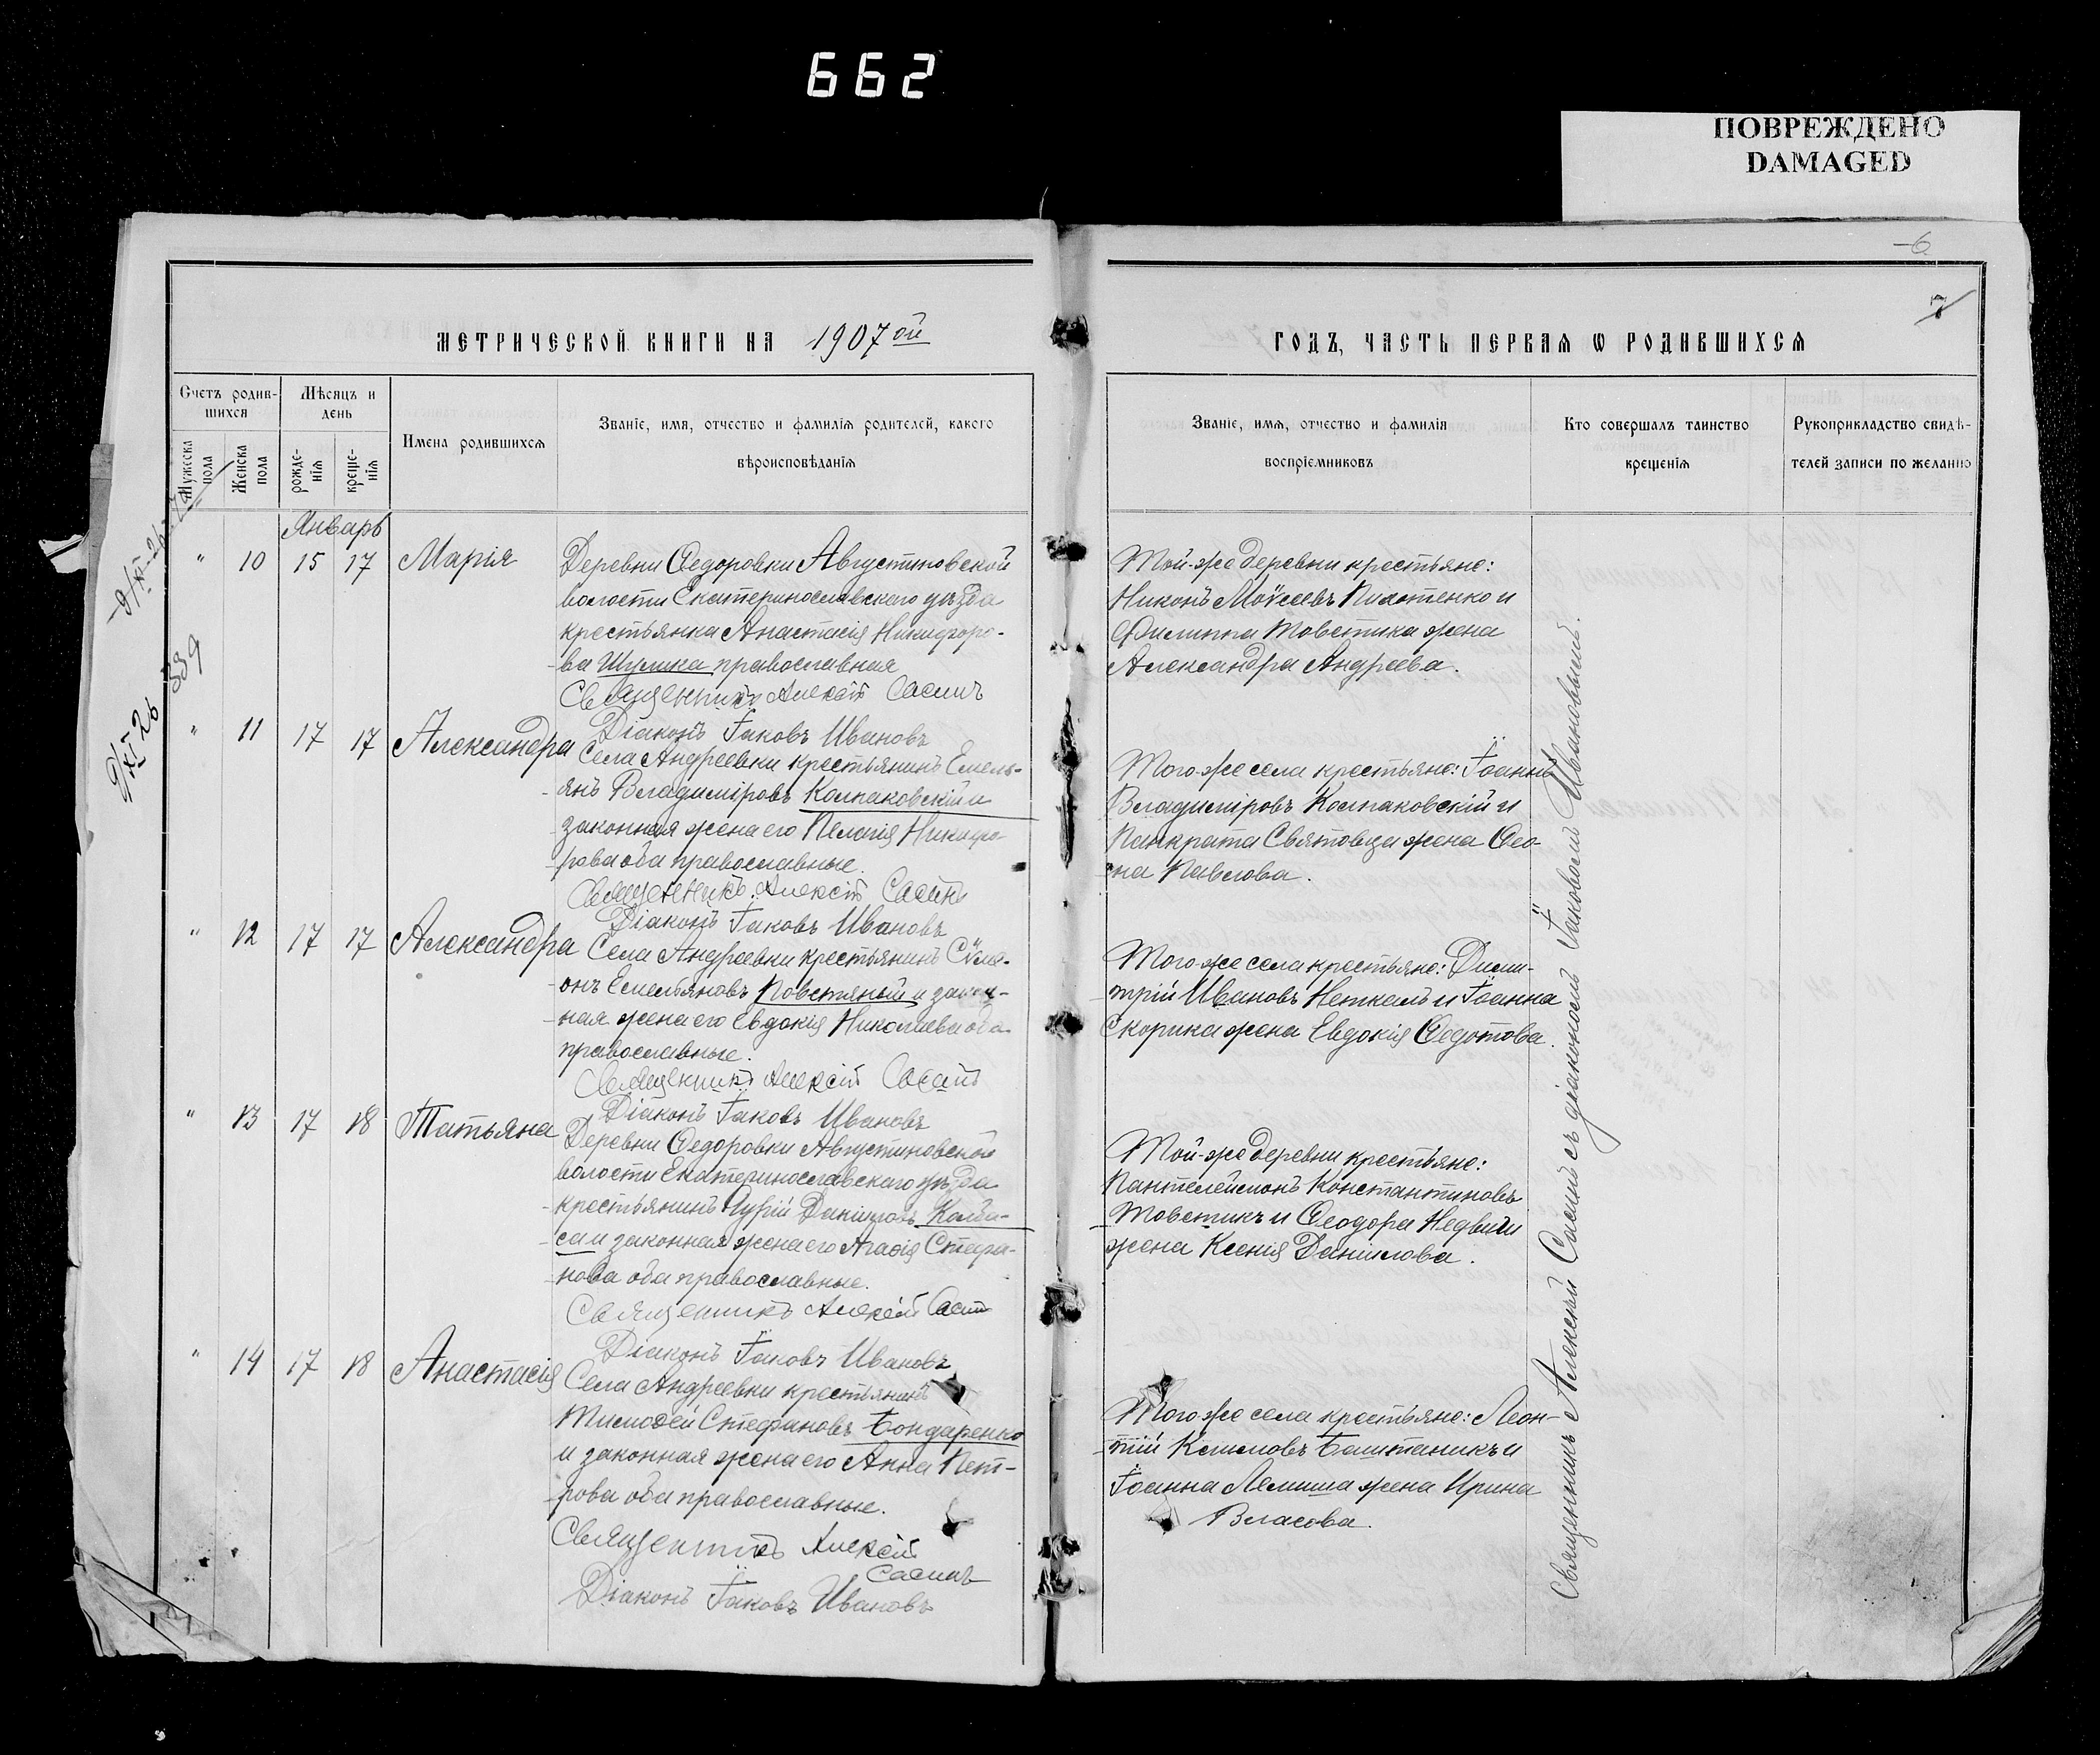 662
ПОВРЕЖДЕНО
DAMAGED
-6
7
МЕТРИЧЕСКОЙ КНИГИ НА 1907ой
ГОДЪ, ЧАСТЬ ПЕРВАЯ Ѡ РОДИВШИХСЯ
Счетъ родив-
шихся
Мужеска пола
Женска пола
Мѣсяцъ и день
рожде-
нія
креще-
нія
Имена родившихся
Званіе, имя, отчество и фамилія родителей, какого
вѣроисповѣданія
Званіе, имя, отчество и фамилія
воспріемниковъ
Кто совершалъ таинство
крещенія
Рукоприкладство свидѣ-
телей записи по желанію
Январь
" 10 15 17 Марія
Деревни Ѳедоровки Августиновской
волости Екатеринославскаго уѣзда
крестьянка Анастасія Никифоро-
ва Шулика православная
Священникъ Алексій Сасинъ
Діаконъ Іаковъ Ивановъ
Той-же деревни крестьяне:
Никонъ Моѵсеевъ Пилотенко и
Филиппа Товстика жена
Александра Андреева.
" 11 17 17 Александра
Села Андреевки крестьянинъ Емель-
янъ Владиміровъ Колпаковскій и
законная жена его Пелагія Никифо-
рова оба православные.
Священникъ Алексій Сасинъ
Діаконъ Іаковъ Ивановъ
Того-же села крестьяне: Іоаннъ
Владиміровъ Колпаковскій и
Панкрата Святовца жена Ѳео-
на Павлова.
" 12 17 17 Александра
Села Андреевки крестьянинъ Сѵме-
онъ Емельяновъ Повстяный и закон-
ная жена его Евдокія Николаева оба
православные.
Священникъ Алексій Сасинъ
Діаконъ Іаковъ Ивановъ
Того-же села крестьяне: Дими-
трій Ивановъ Неткалъ и Іоанна
Скорика жена Евдокія Ѳедотова.
" 13 17 18 Татьяна
Деревни Ѳедоровки Августиновской
волости Екатеринославскаго уѣзда
крестьянинъ Гурій Даніиловъ Колба-
са и законная жена его Агаѳія Стефа-
нова оба православные.
Священникъ Алексій Сасинъ
Діаконъ Іаковъ Ивановъ
Той-же деревни крестьяне:
Пантелеймонъ Константиновъ
Товстикъ и Ѳеодора Недвиги
жена Ксенія Даніилова.
" 14 17 18 Анастасія
Села Андреевки крестьянинъ
Тимоѳей Стефановъ Бондаренко
и законная жена его Анна Пет-
рова оба православные.
Священникъ Алексій
Сасинъ
Діаконъ Іаковъ Ивановъ
Того-же села крестьяне: Леон-
тій Климовъ Баштаникъ и
Іоанна Лемиша жена Ирина
Власова.
Священникъ Алексѣй Сасинъ съ діакономъ Іаковомъ Ивановымъ.